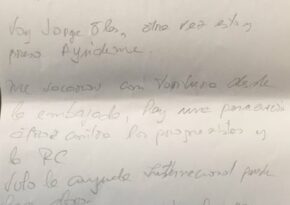 Soy Jorge Glas, otra vez estoy
preso Ayúdeme.
me sacaron con tortura desde
la embajada, hay una persecución
atroz contra los progresistas y
la RC
Solo la ayuda internacional puede